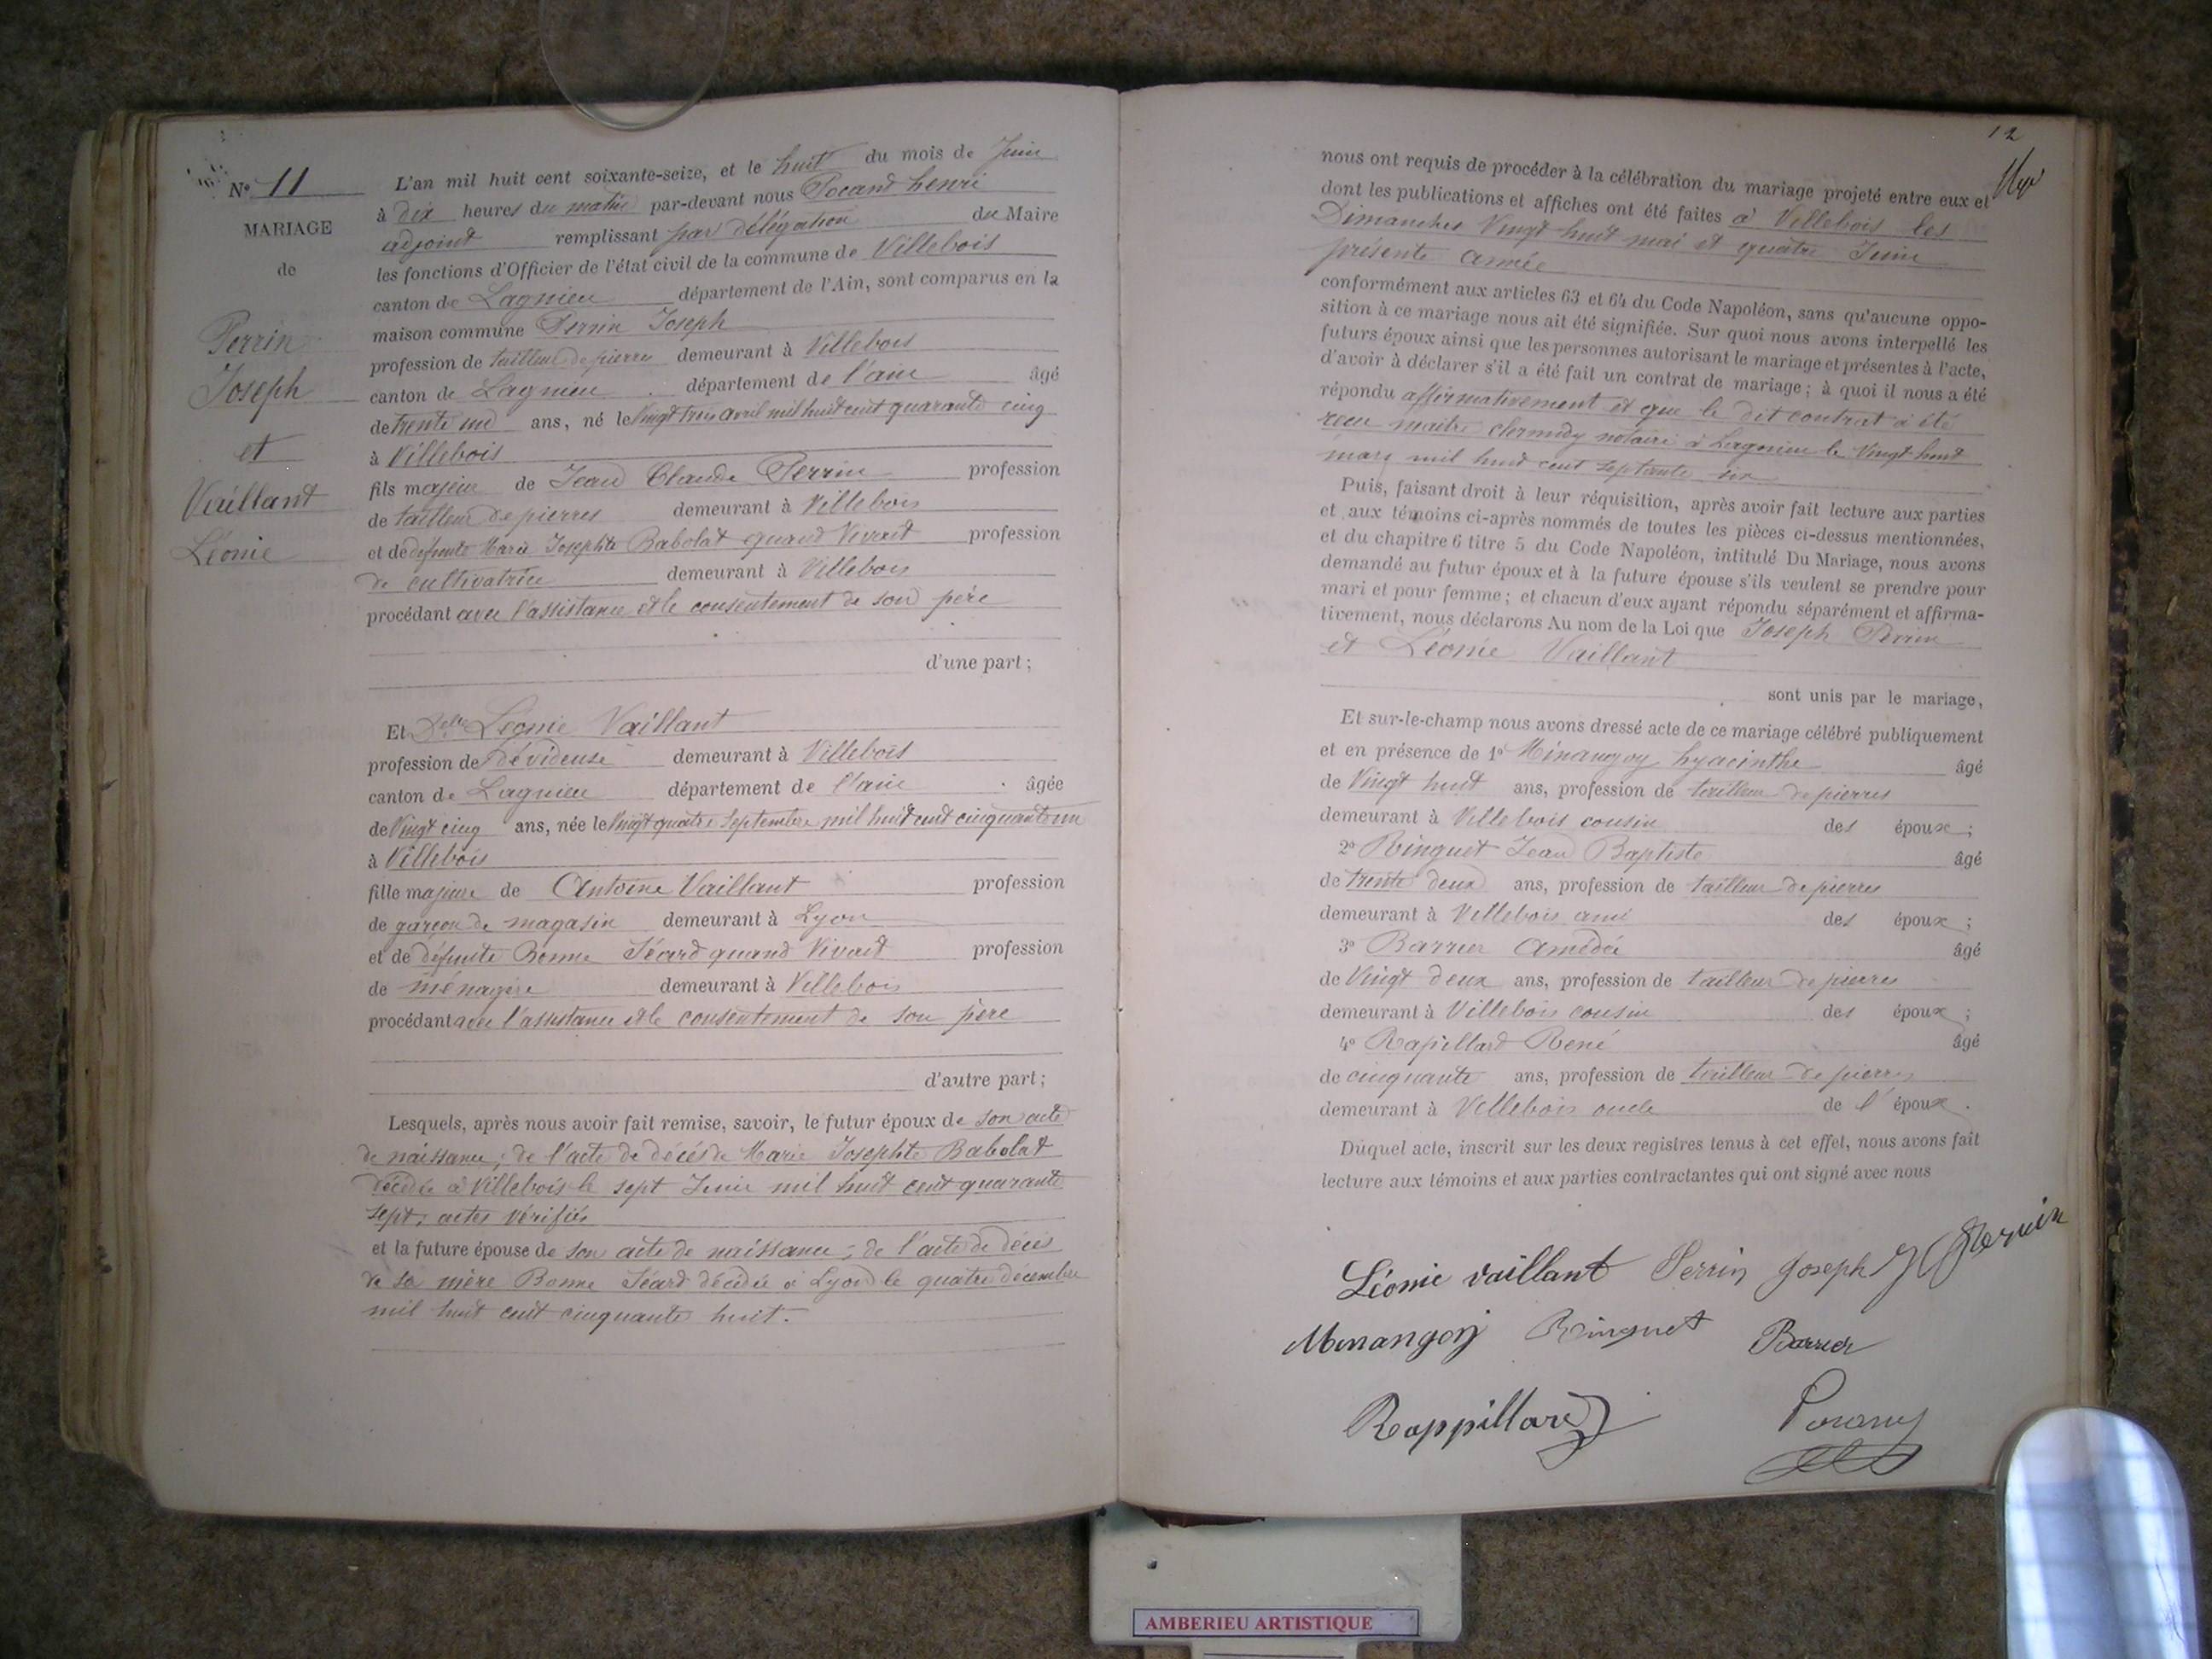 Nº 11
MARIAGE
de
Perrin
Joseph
et
Vaillant
Léonie
L'an mil huit cent soixante-seize, et le huit du mois de Juin
à dix heures du matin par-devant nous Pocard henri
adjoint remplissant par délégation du Maire
les fonctions d'Officier de l'état civil de la commune de Villebois
canton de Lagnieu département de l'Ain, sont comparus en la
maison commune Perrin Joseph
profession de tailleur de pierre demeurant à Villebois
canton de Lagnieu département de l'ain âgé
de trente un ans, né le Vingt trois avril mil huit cent quarante cinq
à Villebois
fils majeur de Jean Claude Perrin profession
de tailleur de pierres demeurant à Villebois
et de defunte Marie Josephte Babolat quand Vivait profession
de cultivatrice demeurant à Villebois
procédant avec l'assistance et le consentement de son père
d'une part ;
Et Delle Léonie Vaillant
profession de dévideuse demeurant à Villebois
canton de Lagnieu département de l'ain âgée
de Vingt cinq ans, née le Vingt quatre Septembre mil huit cent cinquante un
à Villebois
fille majeure de Antoine Vaillant profession
de garçon de magasin demeurant à Lyon
et de défunte Bonne Sécard quand Vivait profession
de ménagère demeurant à Villebois
procédant avec l'assistance et le consentement de son père
d'autre part ;
Lesquels, après nous avoir fait remise, savoir, le futur époux de son acte
de naissance ; de l'acte de décés de Marie Josephte Babolat
décédée à Villebois le sept Juin mil huit cent quarante
sept, actes vérifiés
et la future épouse de son acte de naissance ; de l'acte de décés
de sa mère Bonne Sécard décédée à Lyon le quatre décembre
mil huit cent cinquante huit.
12
nous ont requis de procéder à la célébration du mariage projeté entre eux et
dont les publications et affiches ont été faites à Villebois les
Dimanches Vingt huit mai et quatre Juin
présente année
conformément aux articles 63 et 64 du Code Napoléon, sans qu'aucune oppo-
sition à ce mariage nous ait été signifiée. Sur quoi nous avons interpellé les
futurs époux ainsi que les personnes autorisant le mariage et présentes à l'acte,
d'avoir à déclarer s'il a été fait un contrat de mariage ; à quoi il nous a été
répondu affirmativement et que le dit contrat à été
recu maitre clermidy notaire à Lagnieu le Vingt huit
mars mil huit cent septante six
Puis, faisant droit à leur réquisition, après avoir fait lecture aux parties
et aux témoins ci-après nommés de toutes les pièces ci-dessus mentionnées,
et du chapitre 6 titre 5 du Code Napoléon, intitulé Du Mariage, nous avons
demandé au futur époux et à la future épouse s'ils veulent se prendre pour
mari et pour femme ; et chacun d'eux ayant répondu séparément et affirma-
tivement, nous déclarons Au nom de la Loi que Joseph Perrin
et Léonie Vaillant
sont unis par le mariage,
Et sur-le-champ nous avons dressé acte de ce mariage célébré publiquement
et en présence de 1º Minangoy hyacinthe âgé
de Vingt huit ans, profession de tailleur de pierres
demeurant à Villebois cousin des époux ;
2º Ringuet Jean Baptiste âgé
de trente deux ans, profession de tailleur de pierres
demeurant à Villebois ami des époux ;
3º Barrier Amédée âgé
de Vingt deux ans, profession de tailleur de pierres
demeurant à Villebois cousin des époux ;
4º Rapillard René âgé
de cinquante ans, profession de tailleur de pierres
demeurant à Villebois oncle de l'époux.
Duquel acte, inscrit sur les deux registres tenus à cet effet, nous avons fait
lecture aux témoins et aux parties contractantes qui ont signé avec nous
Léonie vaillant Perrin Joseph
Minangoy Ringuet Barrier
Rappillard
AMBERIEU ARTISTIQUE